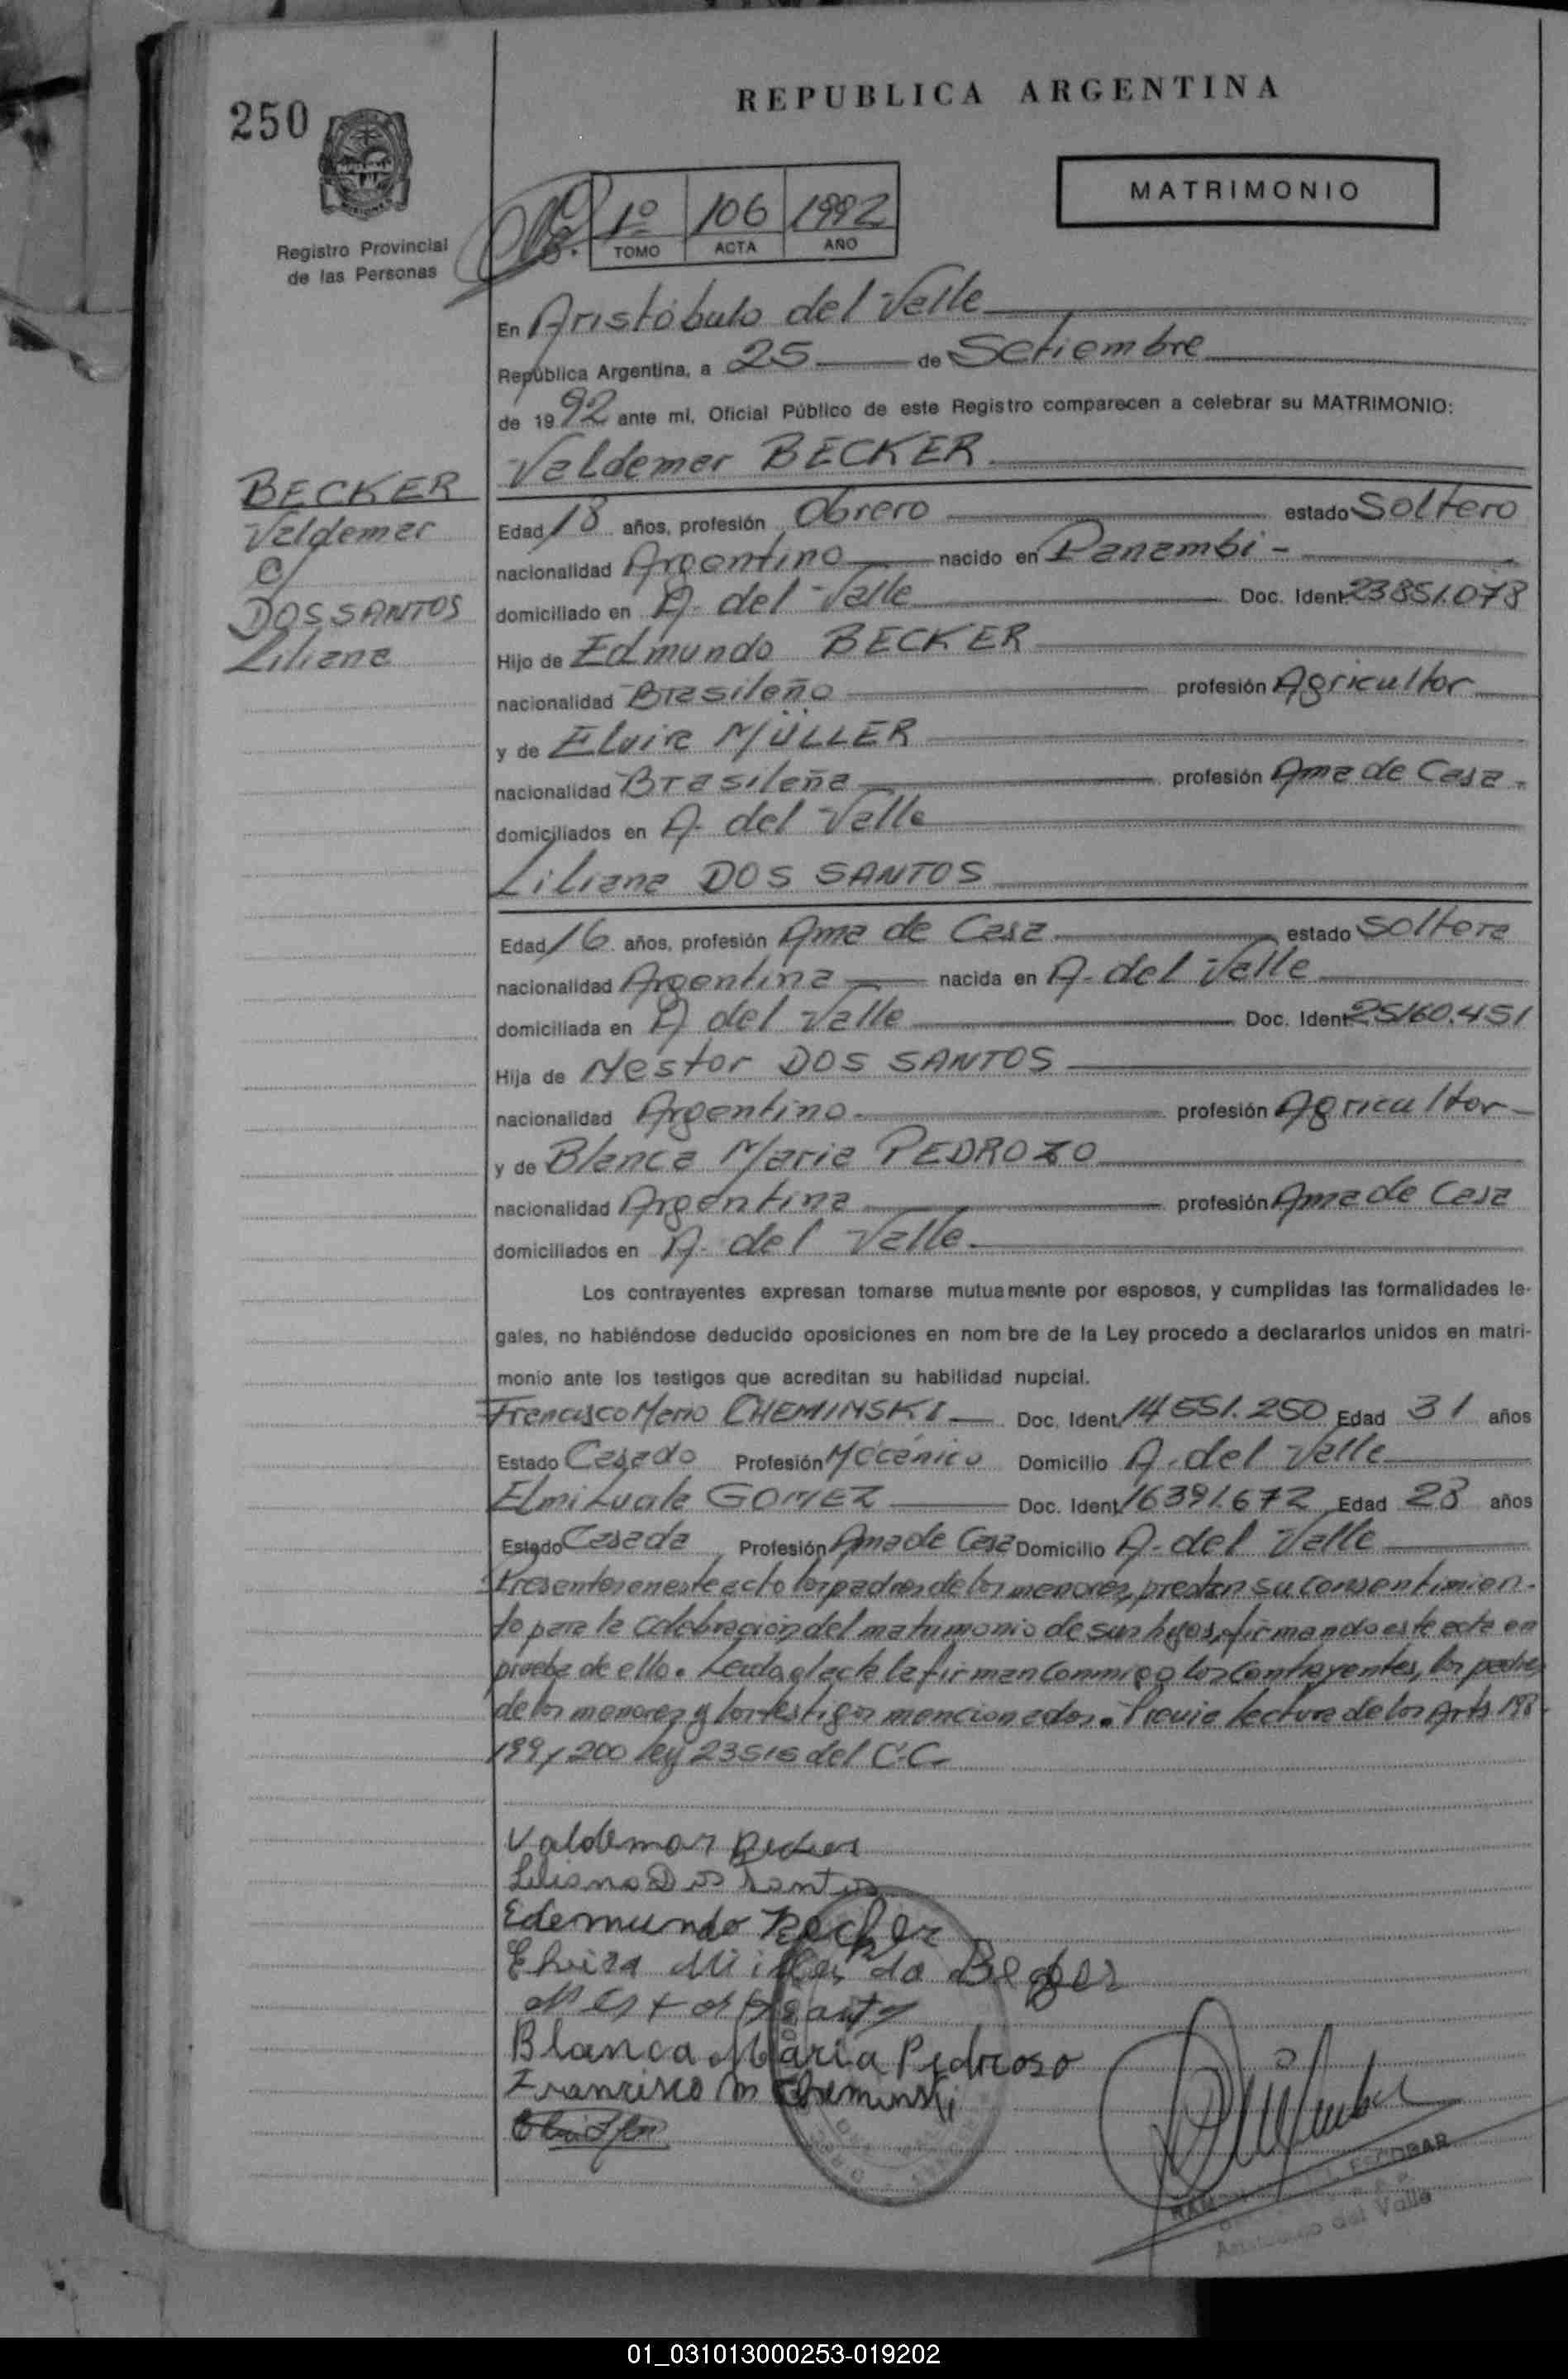 REPUBLICA ARGENTINA
250
MATRIMONIO
1º 106 1992
TOMO ACTA AÑO
Registro Provincial
de las Personas
En Aristóbulo del Valle
República Argentina, a 25 de Setiembre
de 1992 ante mi, Oficial Público de este Registro comparecen a celebrar su MATRIMONIO:
Valdemar BECKER
BECKER
Valdemar
c/
DOS SANTOS
Liliana
Edad 18 años, profesión Obrero estado Soltero
nacionalidad Argentino nacido en Panambi -
domiciliado en A. del Valle Doc. Ident. 23851.078
Hijo de Edmundo BECKER
nacionalidad Brasileño profesión Agricultor
y de Elvira MÜLLER
nacionalidad Brasileña profesión Ama de Casa.
domiciliados en A. del Valle
Liliana DOS SANTOS
Edad 16 años, profesión Ama de Casa estado Soltera
nacionalidad Argentina nacida en A. del Valle
domiciliada en A del Valle Doc. Ident. 25160.451
Hija de Nestor DOS SANTOS
nacionalidad Argentino profesión Agricultor
y de Blanca Maria PEDROZO
nacionalidad Argentina profesión Ama de Casa
domiciliados en A. del Valle
Los contrayentes expresan tomarse mutuamente por esposos, y cumplidas las formalidades le-
gales, no habiéndose deducido oposiciones en nom bre de la Ley procedo a declararlos unidos en matri-
monio ante los testigos que acreditan su habilidad nupcial.
Francisco Mario CHEMINSKI Doc. Ident. 14551.250 Edad 31 años
Estado Casado Profesión Mécánico Domicilio A. del Valle
GOMEZ Doc. Ident. 16391.672 Edad 28 años
Estado Casada Profesión Ama de Casa Domicilio A. del Valle
Presentes en este acto los padres de los menores, prestan su consentimien-
to para la celebración del matrimonio de sus hijos, firmando este acta en
prueba de ello. Leida el acta la firman conmigo los contrayentes, los padres
de los menores y los testigos mencionados. Previa lectura de los Arts 198-
199 y 200 ley 23515 del C.C.
Valdemar Becker
Liliana Dos Santos
Edemundo Becker
Elvira de
Blanca Maria Pedrozo
Francisco M Cheminski
ESCOBAR
del Valle
01_031013000253-019202